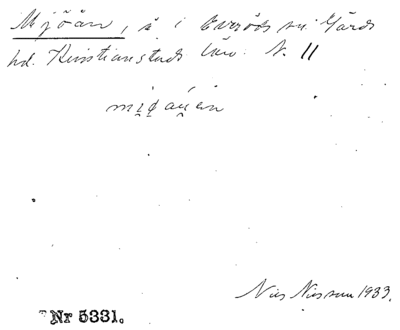 Mjöån, å i Everöds sn. Gärds
hd. Kristianstads län. N. 11
Nils Nilsson 1933.
Nr 5331.